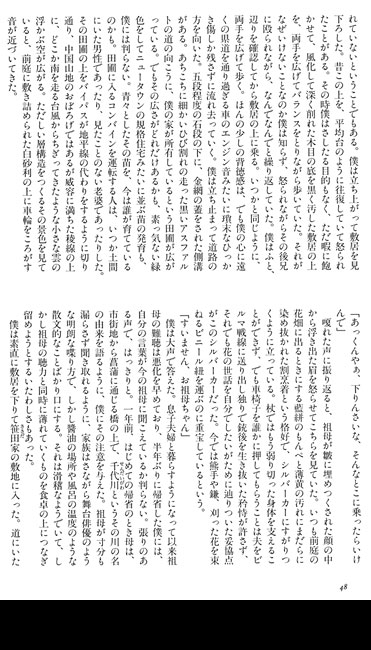 れていないということでもある。僕は立ち上がって敷居を見
下ろした。昔この上を、平均台のように往復していて怒られ
たことがある。その時僕はさしたる目的もなく、ただ暇に飽
かせて、風化して深く削れた木目の底を黒く汚した敷居の上
を、両手を広げてバランスをとりながら歩いていた。それが
なぜいけないことなのか僕は知らず、怒られながらその後兄
に殴られながら、なんでなんでと繰り返していた。僕はふと、
辺りを確認してから敷居の上に乗る。いつかと同じように、
両手を広げて歩く。ほんの少しの背徳感は、でも僕の心に遠
くの県道を通り過ぎる車のエンジン音みたいに瑣末なひっか
き傷しか残さずに流れ去っていく。僕は立ち止まって道路の
方を向いた。五段程度の石段の下に、金網の蓋をされた側溝
がある。あちこちに細かいひび割れの走った黒いアスファル
トの道の向こうに、僕の家が所有しているという田圃が広が
っている。でもその広さがどれだけあるかも、素っ気ない緑
色をしてニュータウンの規格住宅みたいに並ぶ苗の発育も、
僕には判らない。青々としたその苗を、今は誰が育てている
のかも。田圃に入るコンバインを運転する人は、いつか土間
にいた男性であったり、見たことのない老婆であったりした。
その田圃の上をバイパスが地平線の代わりをするように切り
通り、中国山地のおぼろげではあるが威容に満ちた稜線の上
に、どこか南を走る台風からちぎってきたような小さな雲の
浮かぶ空が広がる。ただしい層構造をつくるその景色を見て
いると、前庭に敷き詰められた白砂利の上に車輪をころがす
音が近づいてきた。
「あっくんやぁ、下りんさいな、そんなとこに乗ったらいけ
んで」
嗄れた声に振り返ると、祖母が皺に埋めつくされた顔の中
から浮き出た眉を怒らせてこちらを見ていた。いつも前庭の
花畑に出るときにする藍絣のもんぺと薄黄の汚れにまだらに
染め抜かれた割烹着という格好で、シルバーカーにすがりつ
くように立っている。杖ではもう弱り切った身体を支えるこ
とができず、でも車椅子を誰かに押してもらうことは夫をビ
ルマ戦線に送り出し独りで銃後を生き抜いた矜恃が許さず、
それでも花の世話を自分でしたいがために辿りついた妥協点
がこのシルバーカーだった。今では熊手や鎌、刈った花を束
ねるビニール紐を運ぶのに重宝しているという。
「すいません、お祖母ちゃん」
僕は大声で答えた。息子夫婦と暮らすようになって以来祖
母の難聴は悪化を早めており、半年ぶりに帰省した僕には、
自分の言葉が今の祖母に聞こえているか判らない。張りのあ
る声で、はっきりと。一年前、はじめての帰省のとき母は、
市街地から菖蒲に通じる橋の上で、千代川というその川の名
の由来を語るように、僕にその注意を与えた。祖母が寸分も
漏らさず聞き取れるように、家族はさながら舞台俳優のよう
な明朗な喋り方で、しかし醤油の場所や風呂の温度のような
散文的なことばかり口にする。それは滑稽なようでいて、し
かし祖母の聴力と同時に薄れていくものを食卓の上につなぎ
留めようとするいたわしさもあった。
僕は素直に敷居を下りて笹田家の敷地に入った。道にいた
48